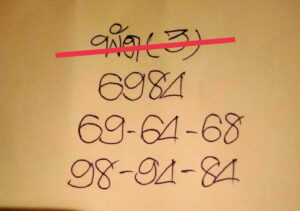 พัด (3)
6984
69-64-68
98-94-84